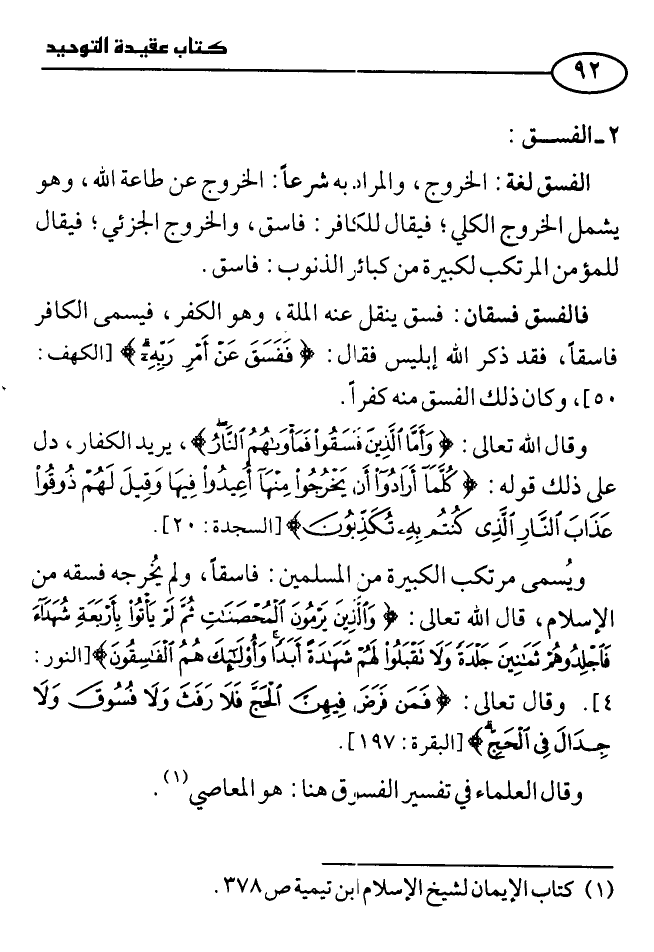 كتاب عقيدة التوحيد
٩٢
٢ ـ الفســق :
الفسق لغة : الخروج ، والمراد به شرعاً : الخروج عن طاعة الله ، وهو
يشمل الخروج الكلي ؛ فيقال للكافر : فاسق ، والخروج الجزئي ؛ فيقال
للمؤمن المرتكب لكبيرة من كبائر الذنوب : فاسق .
فالفسق فسقان : فسق ينقل عنه الملة ، وهو الكفر ، فيسمى الكافر
فاسقاً ، فقد ذكر الله إبليس فقال : ﴿ فَفَسَقَ عَنْ أَمْرِ رَبِّهِۦٓۗ ﴾ [الكهف :
٥٠] ، وكان ذلك الفسق منه كفراً .
وقال الله تعالى : ﴿ وَأَمَّا ٱلَّذِينَ فَسَقُوا۟ فَمَأْوَىٰهُمُ ٱلنَّارُۖ ﴾ ، يريد الكفار ، دل
على ذلك قوله : ﴿ كُلَّمَآ أَرَادُوٓا۟ أَن يَخْرُجُوا۟ مِنْهَآ أُعِيدُوا۟ فِيهَا وَقِيلَ لَهُمْ ذُوقُوا۟
عَذَابَ ٱلنَّارِ ٱلَّذِى كُنتُم بِهِۦ تُكَذِّبُونَ ﴾ [السجدة : ٢٠] .
ويُسمى مرتكب الكبيرة من المسلمين : فاسقاً ، ولم يُخرجه فسقه من
الإسلام ، قال الله تعالى : ﴿ وَٱلَّذِينَ يَرْمُونَ ٱلْمُحْصَنَٰتِ ثُمَّ لَمْ يَأْتُوا۟ بِأَرْبَعَةِ شُهَدَآءَ
فَٱجْلِدُوهُمْ ثَمَٰنِينَ جَلْدَةً وَلَا تَقْبَلُوا۟ لَهُمْ شَهَٰدَةً أَبَدًاۚ وَأُو۟لَٰٓئِكَ هُمُ ٱلْفَٰسِقُونَ ﴾ [النور :
٤] . وقال تعالى : ﴿ فَمَن فَرَضَ فِيهِنَّ ٱلْحَجَّ فَلَا رَفَثَ وَلَا فُسُوقَ وَلَا
جِدَالَ فِى ٱلْحَجِّۗ ﴾ [البقرة : ١٩٧] .
وقال العلماء في تفسير الفسوق هنا : هو المعاصي (١) .
(١) كتاب الإيمان لشيخ الإسلام ابن تيمية ص ٣٧٨ .